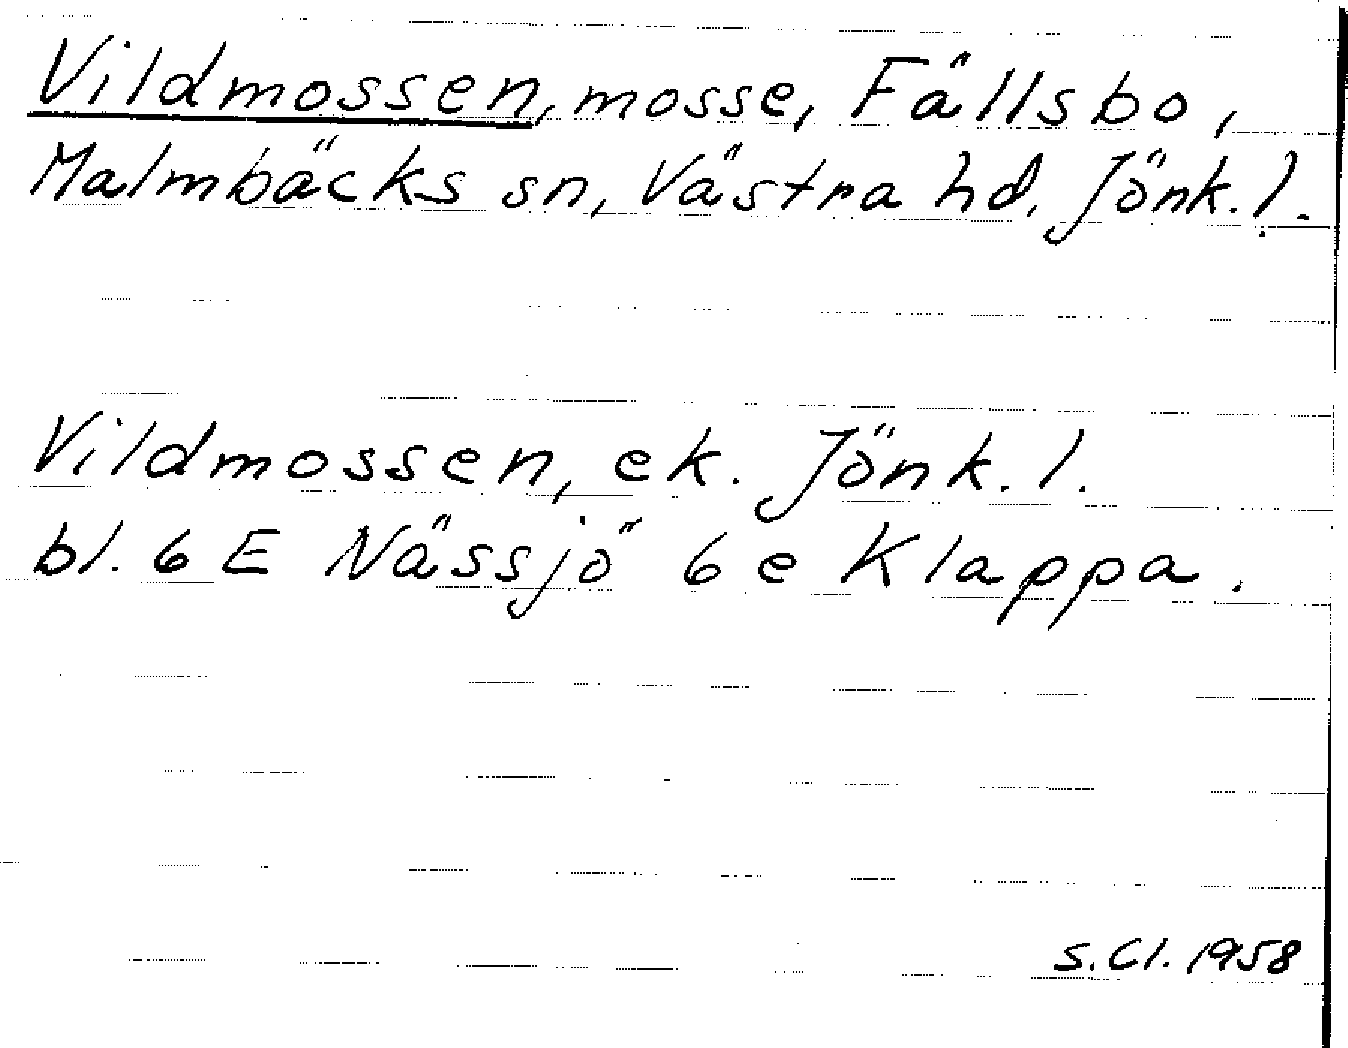 Vildmossen, mosse, Fällsbo,
Malmbäcks sn, Västra hd, Jönk. l.
Vildmossen, ek. Jönk. l.
bl. 6 E Nässjö 6 e Klappa.
S. Cl. 1958